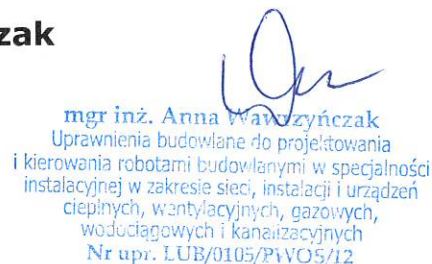 zak
mgr inż. Anna Wawrzyńczak
Uprawnienia budowlane do projektowania
i kierowania robotami budowlanymi w specjalności
instalacyjnej w zakresie sieci, instalacji i urządzeń
cieplnych, wentylacyjnych, gazowych,
wodociągowych i kanalizacyjnych
Nr upr. LUB/0105/PWOS/12